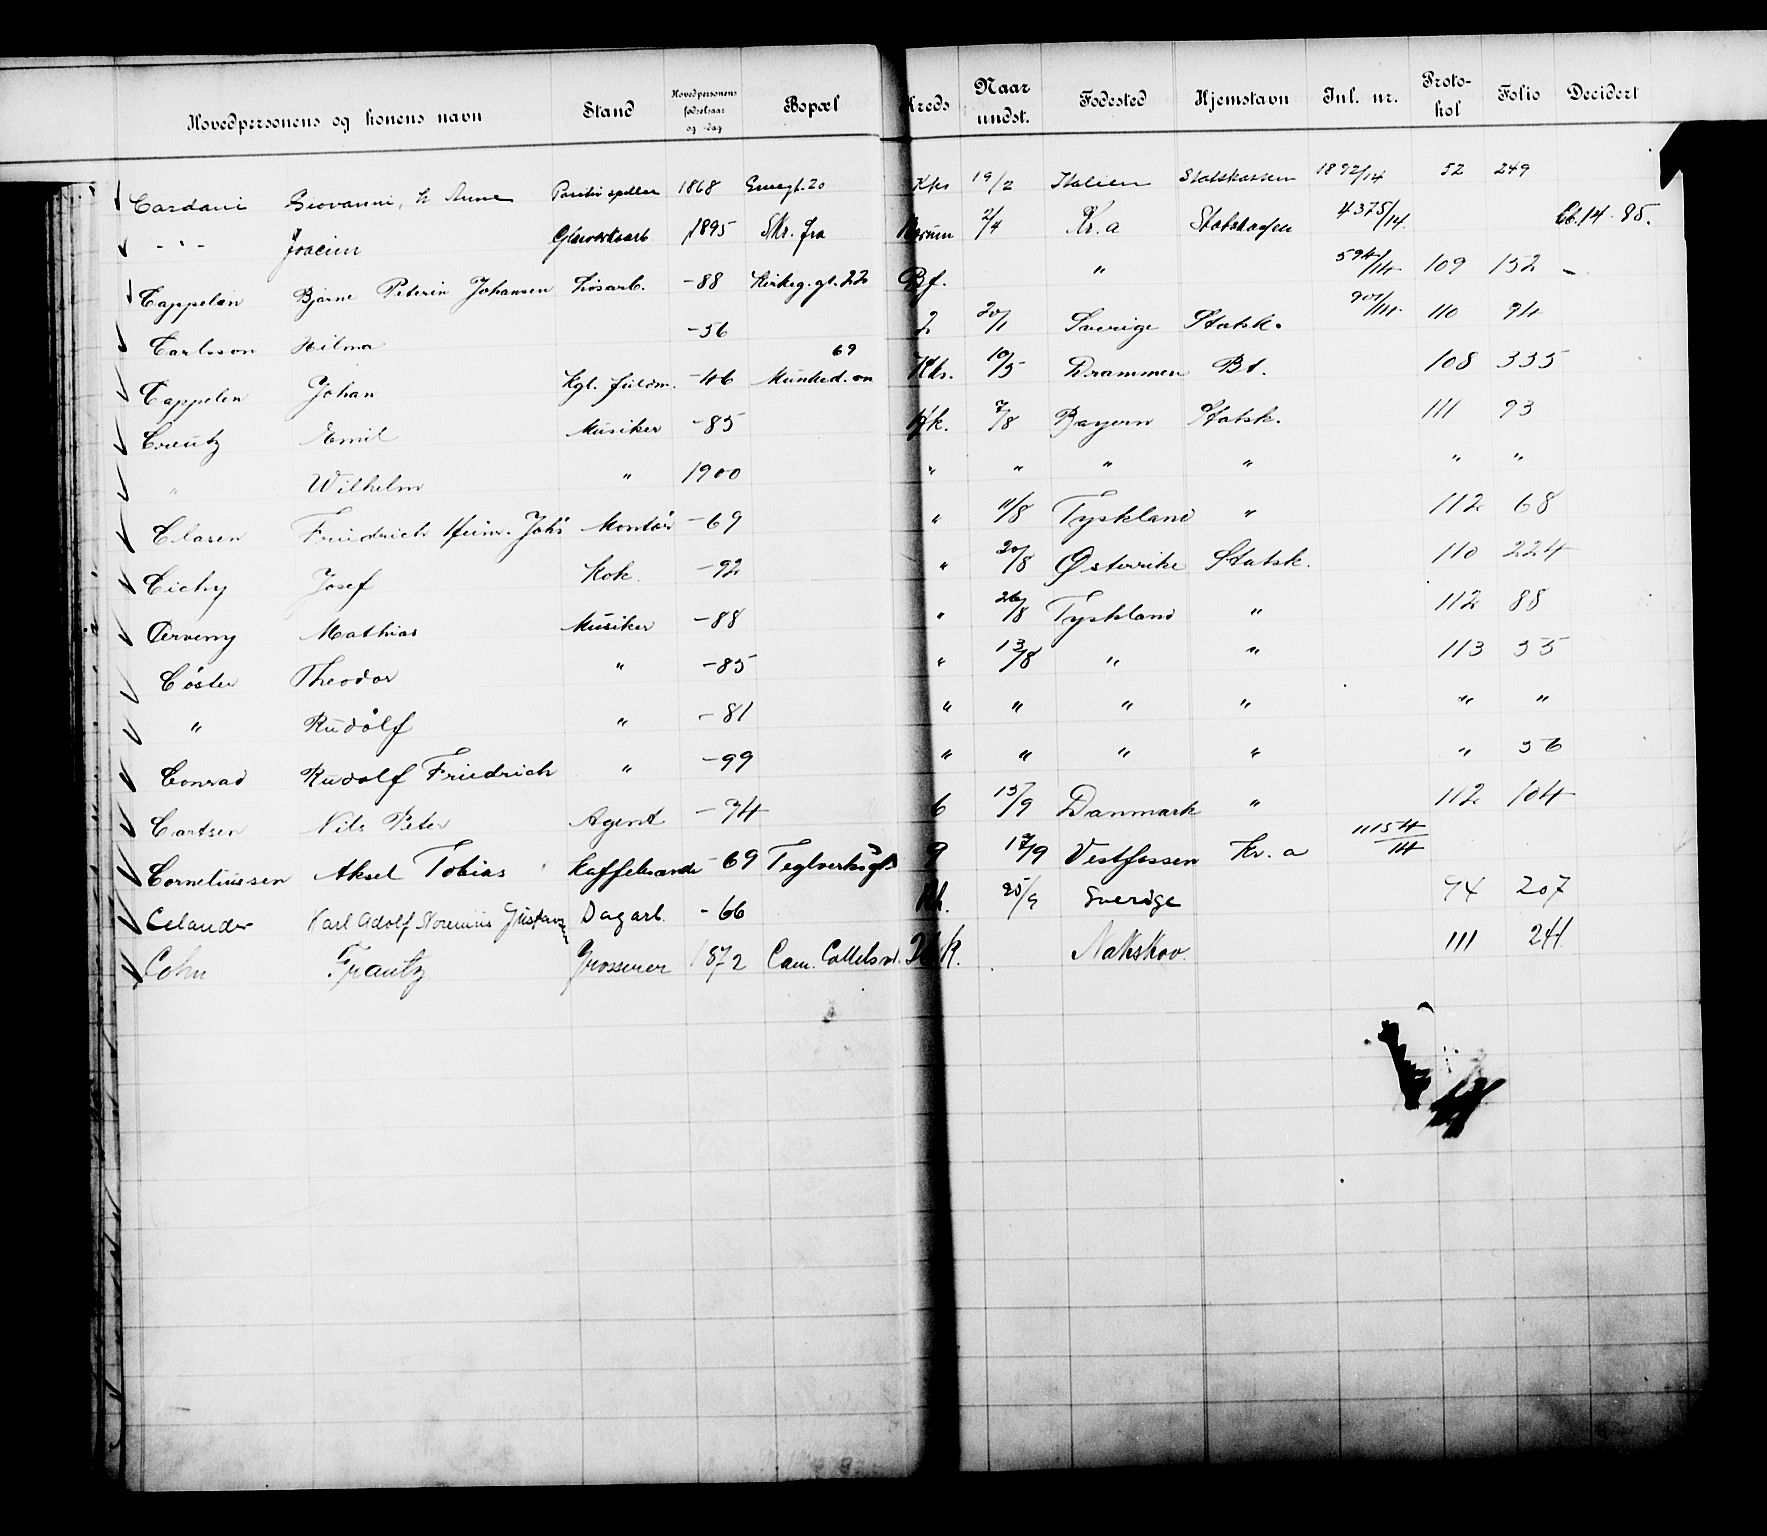 Hovedpersonens og konens navn Stand Hovedpersonens fødselsaar og -dag Bopæl Kreds Naar undst. Fødested Hjemstavn Inl. nr. Proto-kol Folio Decidert
Cardani Giovanni, h. Anne 1868 19/2 Italien Statskassen 1892/14 52 249
- " - Joacim Glasverksarb 1895 Skr. fra Bærum 2/4 Kr.a Statskassen 4375/14 14. 85.
Cappelen Bjarne Peterin Johansen Løsarb. -88 Kirkeg. gt. 22 Bf. " 594/14 109 152 -
Carlsson Hilma -56 2 20/1 Sverige Statsk. 901/14 110 94
Cappelen Johan Kgl. fuldm. -46 Munked. vn 69 10/5 Drammen Bf. 108 335
Creutz Emil Musiker -85 Hk. 7/8 Bayern Statsk. 111 93
" Wilhelm " 1900 " " " " " "
Clasen Friedrich Heinr. Johs Montør -69 " 11/8 Tyskland " 112 68
Cichy Josef Kok. -92 " 20/8 Østerrike Statsk. 110 224
Cerveny Mathias Musiker -88 " 26/8 Tyskland " 112 88
Cöster Theodor " -85 " 13/8 " " 113 55
" Rudolf " -81 " " " " " "
Conrad Rudolf Friedrich " -99 " " " " " 56
Cartsen Nils Peter Agent -74 6 15/9 Danmark " 112 104
Corneliussen Aksel Tobias Kaffebrænder -69 Teglverksgt 9 17/9 Vestfossen Kr.a 11154/14
Celander Karl Adolf Gustavsen Dagarb. -66 25/9 Sverige 94 207
Cohn Frantz Grosserer 1872 Cam. Colletsv. Nakskov. 111 241